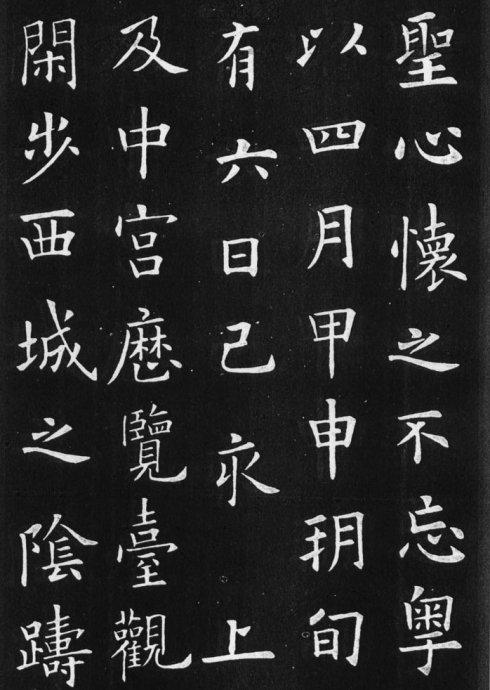 聖心懷之不忘粤
以四月甲申朔旬
有六日己亥上
及中宮歷覽臺觀
閑步西城之陰躊